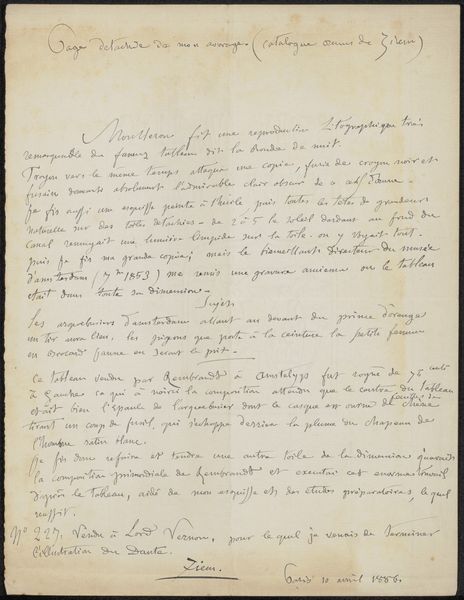 Page détachée de mon ouvrage. (catalogue œuvre de Ziem)
Mouilleron fit une reproduction litographique très
remarquable du fameux tableau dit la Ronde de nuit.
Troyon vers le même temps attaqua une copie, faite de crayon noir et
fusain devants absolument l'admirable clair obscur de ce chef d'œuvre.
je fis aussi une esquisse peinte à l'huile puis toutes les têtes de grandeurs
naturelle sur des toiles détachées - de 2 à 5 le soleil dardant au fond du
canal renvoyait une lumière limpide sur la toile - on y voyait tout.
puis je fis ma grande copie; mais le bienveillant Directeur du musée
d'amsterdam (1853) me remis une gravure ancienne ou le tableau
etait dans toute sa dimension.
Sujet.
Les arquebusiers d'amsterdam allant au devant du prince d'orange
les pigeons que porte à la ceinture la petite femme
en brocard jaune en serait le prix.
Ce tableau vendu par Rembrandt à fut rogné de
à gauche ce qui à noirci la composition attendu que le centre du tableau
etait bien l'épaule de l'arquebusier dont le casque est ourné de chêne
tirant un coup de fusil, qui s'échappe derrière la plume du chapeau de
l'homme satin blanc.
je fis donc refaire et tendre une autre toile de la dimension
la composition primordiale de Rembrandt et executai cet enorme travail
d'après le tableau, aidé de mon esquisse et des études préparatoires, le quel
reussit.
No 227. Vendu à Lord Vernon, pour le quel je venais de terminer
l'illustration du Dante.
Ziem.
Paris 10 avril 1886.